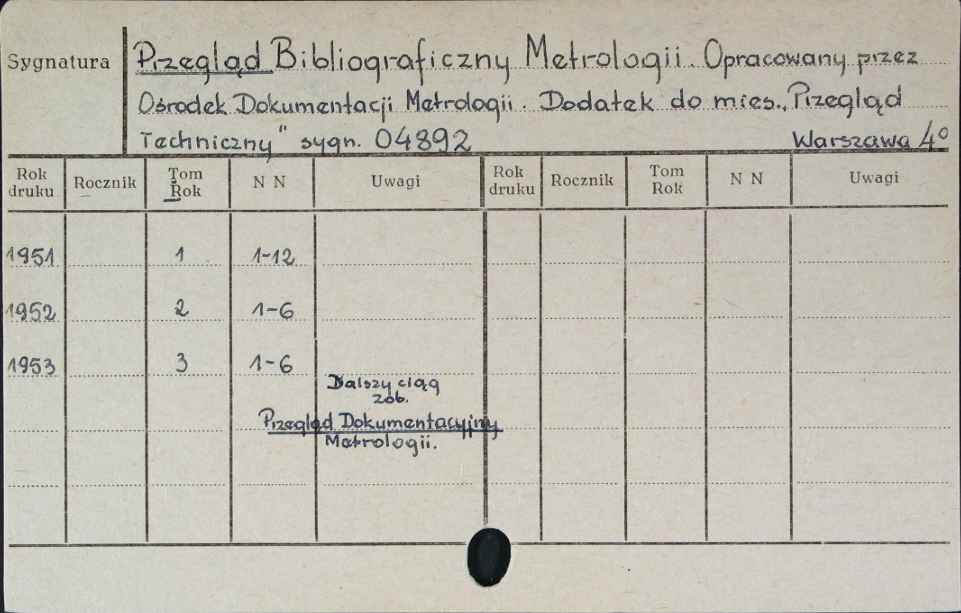 Sygnatura
Przegląd Bibliograficzny Metrologii. Opracowany przez
Ośrodek Dokumentacji Metrologii. Dodatek do mies. „Przegląd
Techniczny" sygn. 04892 Warszawa 4°
Rok druku Rocznik Tom Rok N N Uwagi Rok druku Rocznik Tom Rok N N Uwagi
1951 1 1-12
1952 2 1-6
1953 3 1-6
Dalszy ciąg
zob.
Przegląd Dokumentacyjny
Metrologii.